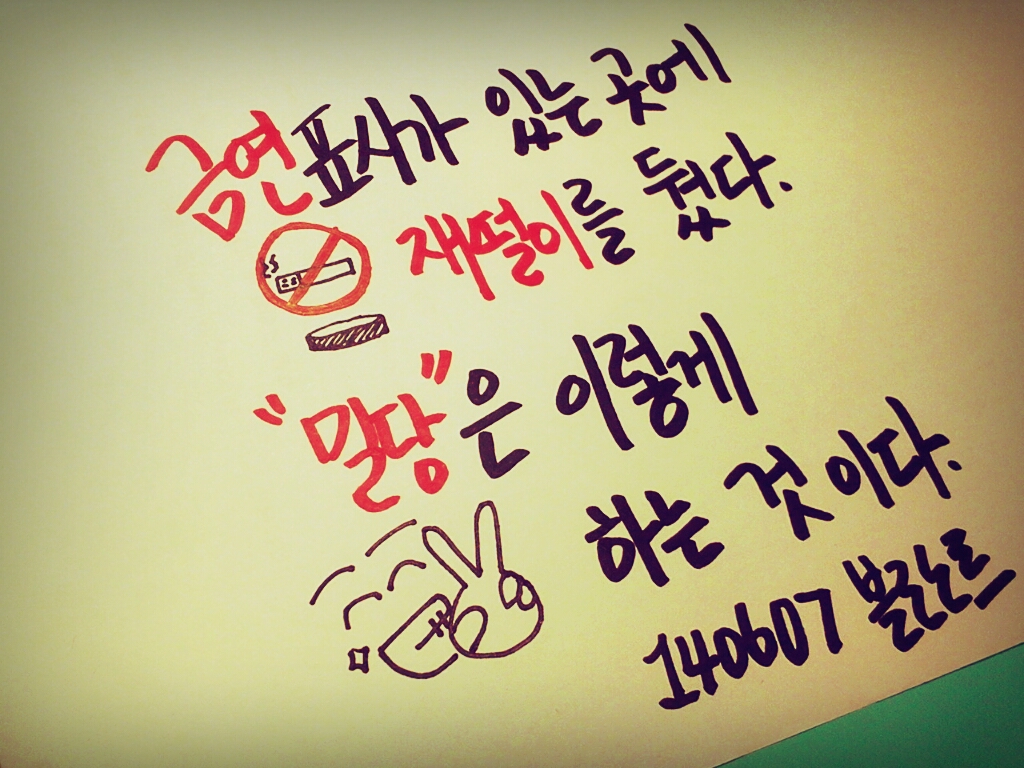 금연표시가 있는 곳에
재떨이를 뒀다.
"밀당"은 이렇게
하는 것이다.
140607 볼군노르